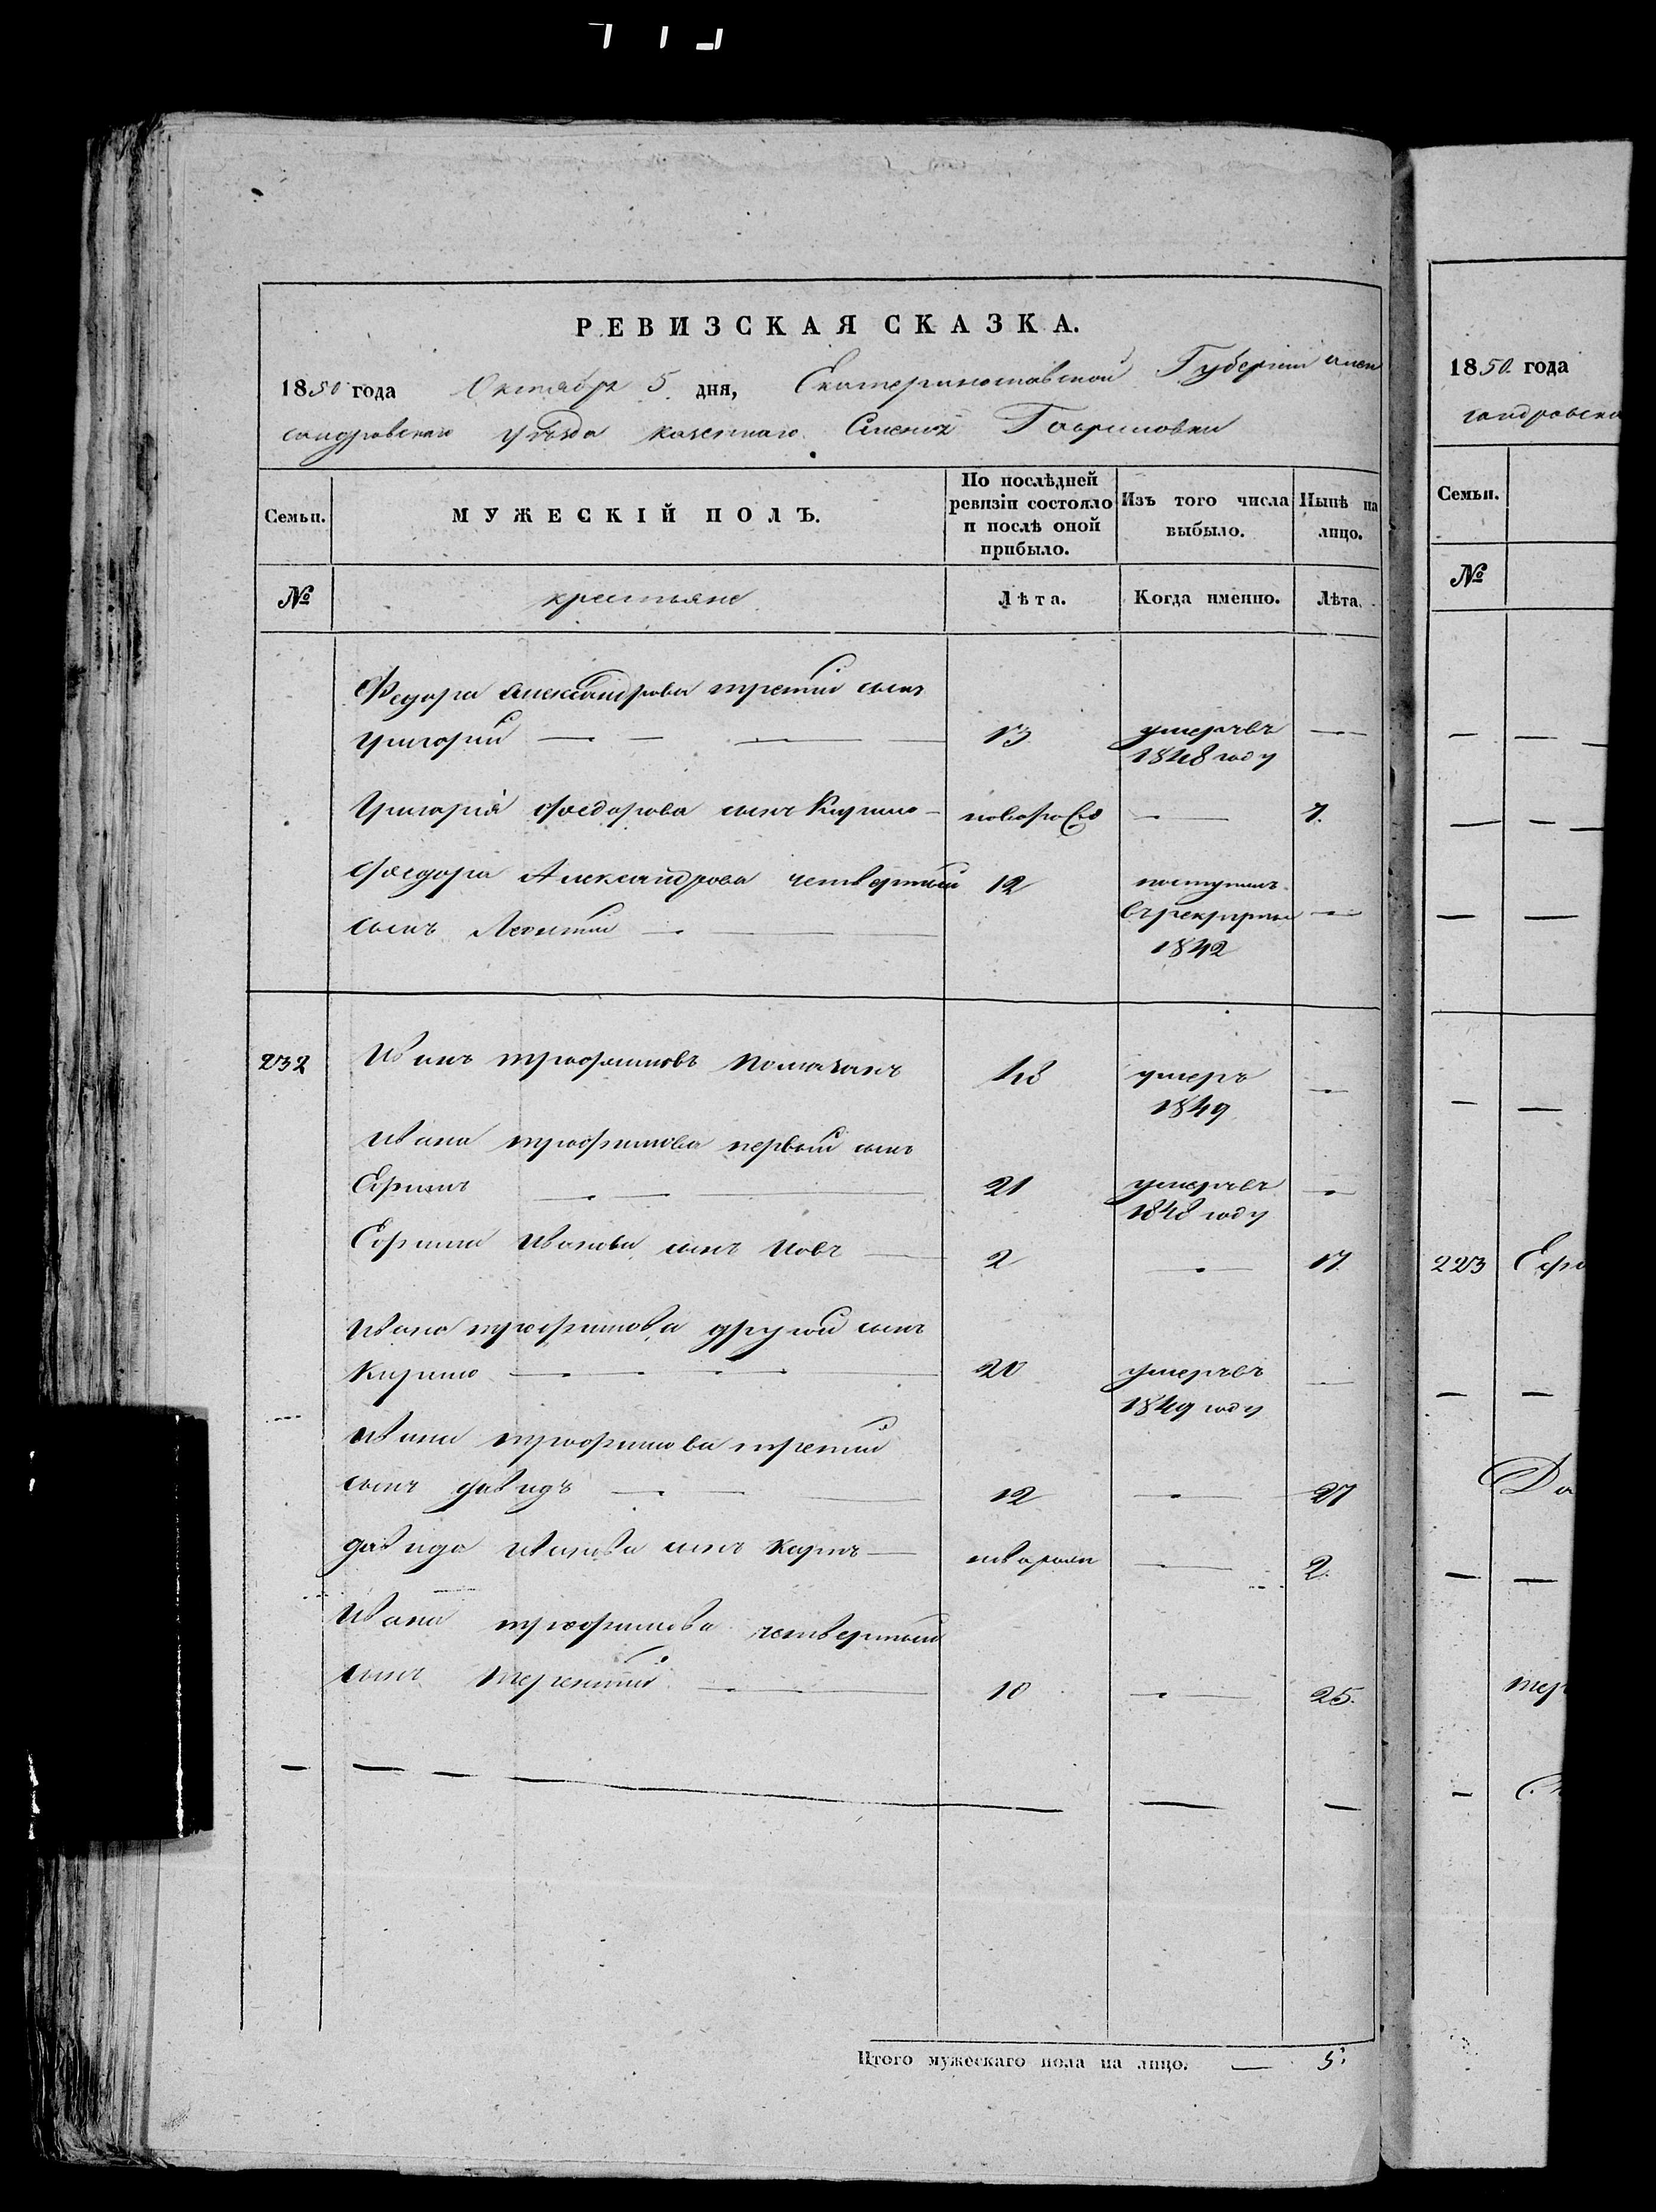 РЕВИЗСКАЯ СКАЗКА.
1850 года Октября 5 дня, Екатеринославской Губернии Алек
сандровскаго уѣзда казеннаго Селенія Гавриловки
Семьи. МУЖЕСКІЙ ПОЛЪ. По послѣдней ревизіи состояло и послѣ оной прибыло. Изъ того числа выбыло. Нынѣ на лицо.
№ крестьяне Лѣта. Когда именно. Лѣта.
Федора Александрова третій сынъ
Григорій 13 умеръ въ
1848 году
Григорія Федорова сынъ Кирило новорож 7.
Федора Александрова четвертый 12 поступилъ
сынъ Леонтій въ рекруты
1842
232 Иванъ Трофимовъ 48 умеръ
1849
Ивана Трофимова первый сынъ
Ефимъ 21 умеръ въ
1848 году
Ефима Иванова сынъ Іовъ 2 17.
Ивана Трофимова другой сынъ
Кирило 20 умеръ въ
1849 году
Ивана Трофимова третій
сынъ Давидъ 12 27
Давида Иванова сынъ Карпъ 2.
Ивана Трофимова четвертый
сынъ Терентій 10 25.
Итого мужескаго пола на лицо. 5.
1850 года
сандровска
Семьи.
№
223 Ефи
Да
тер